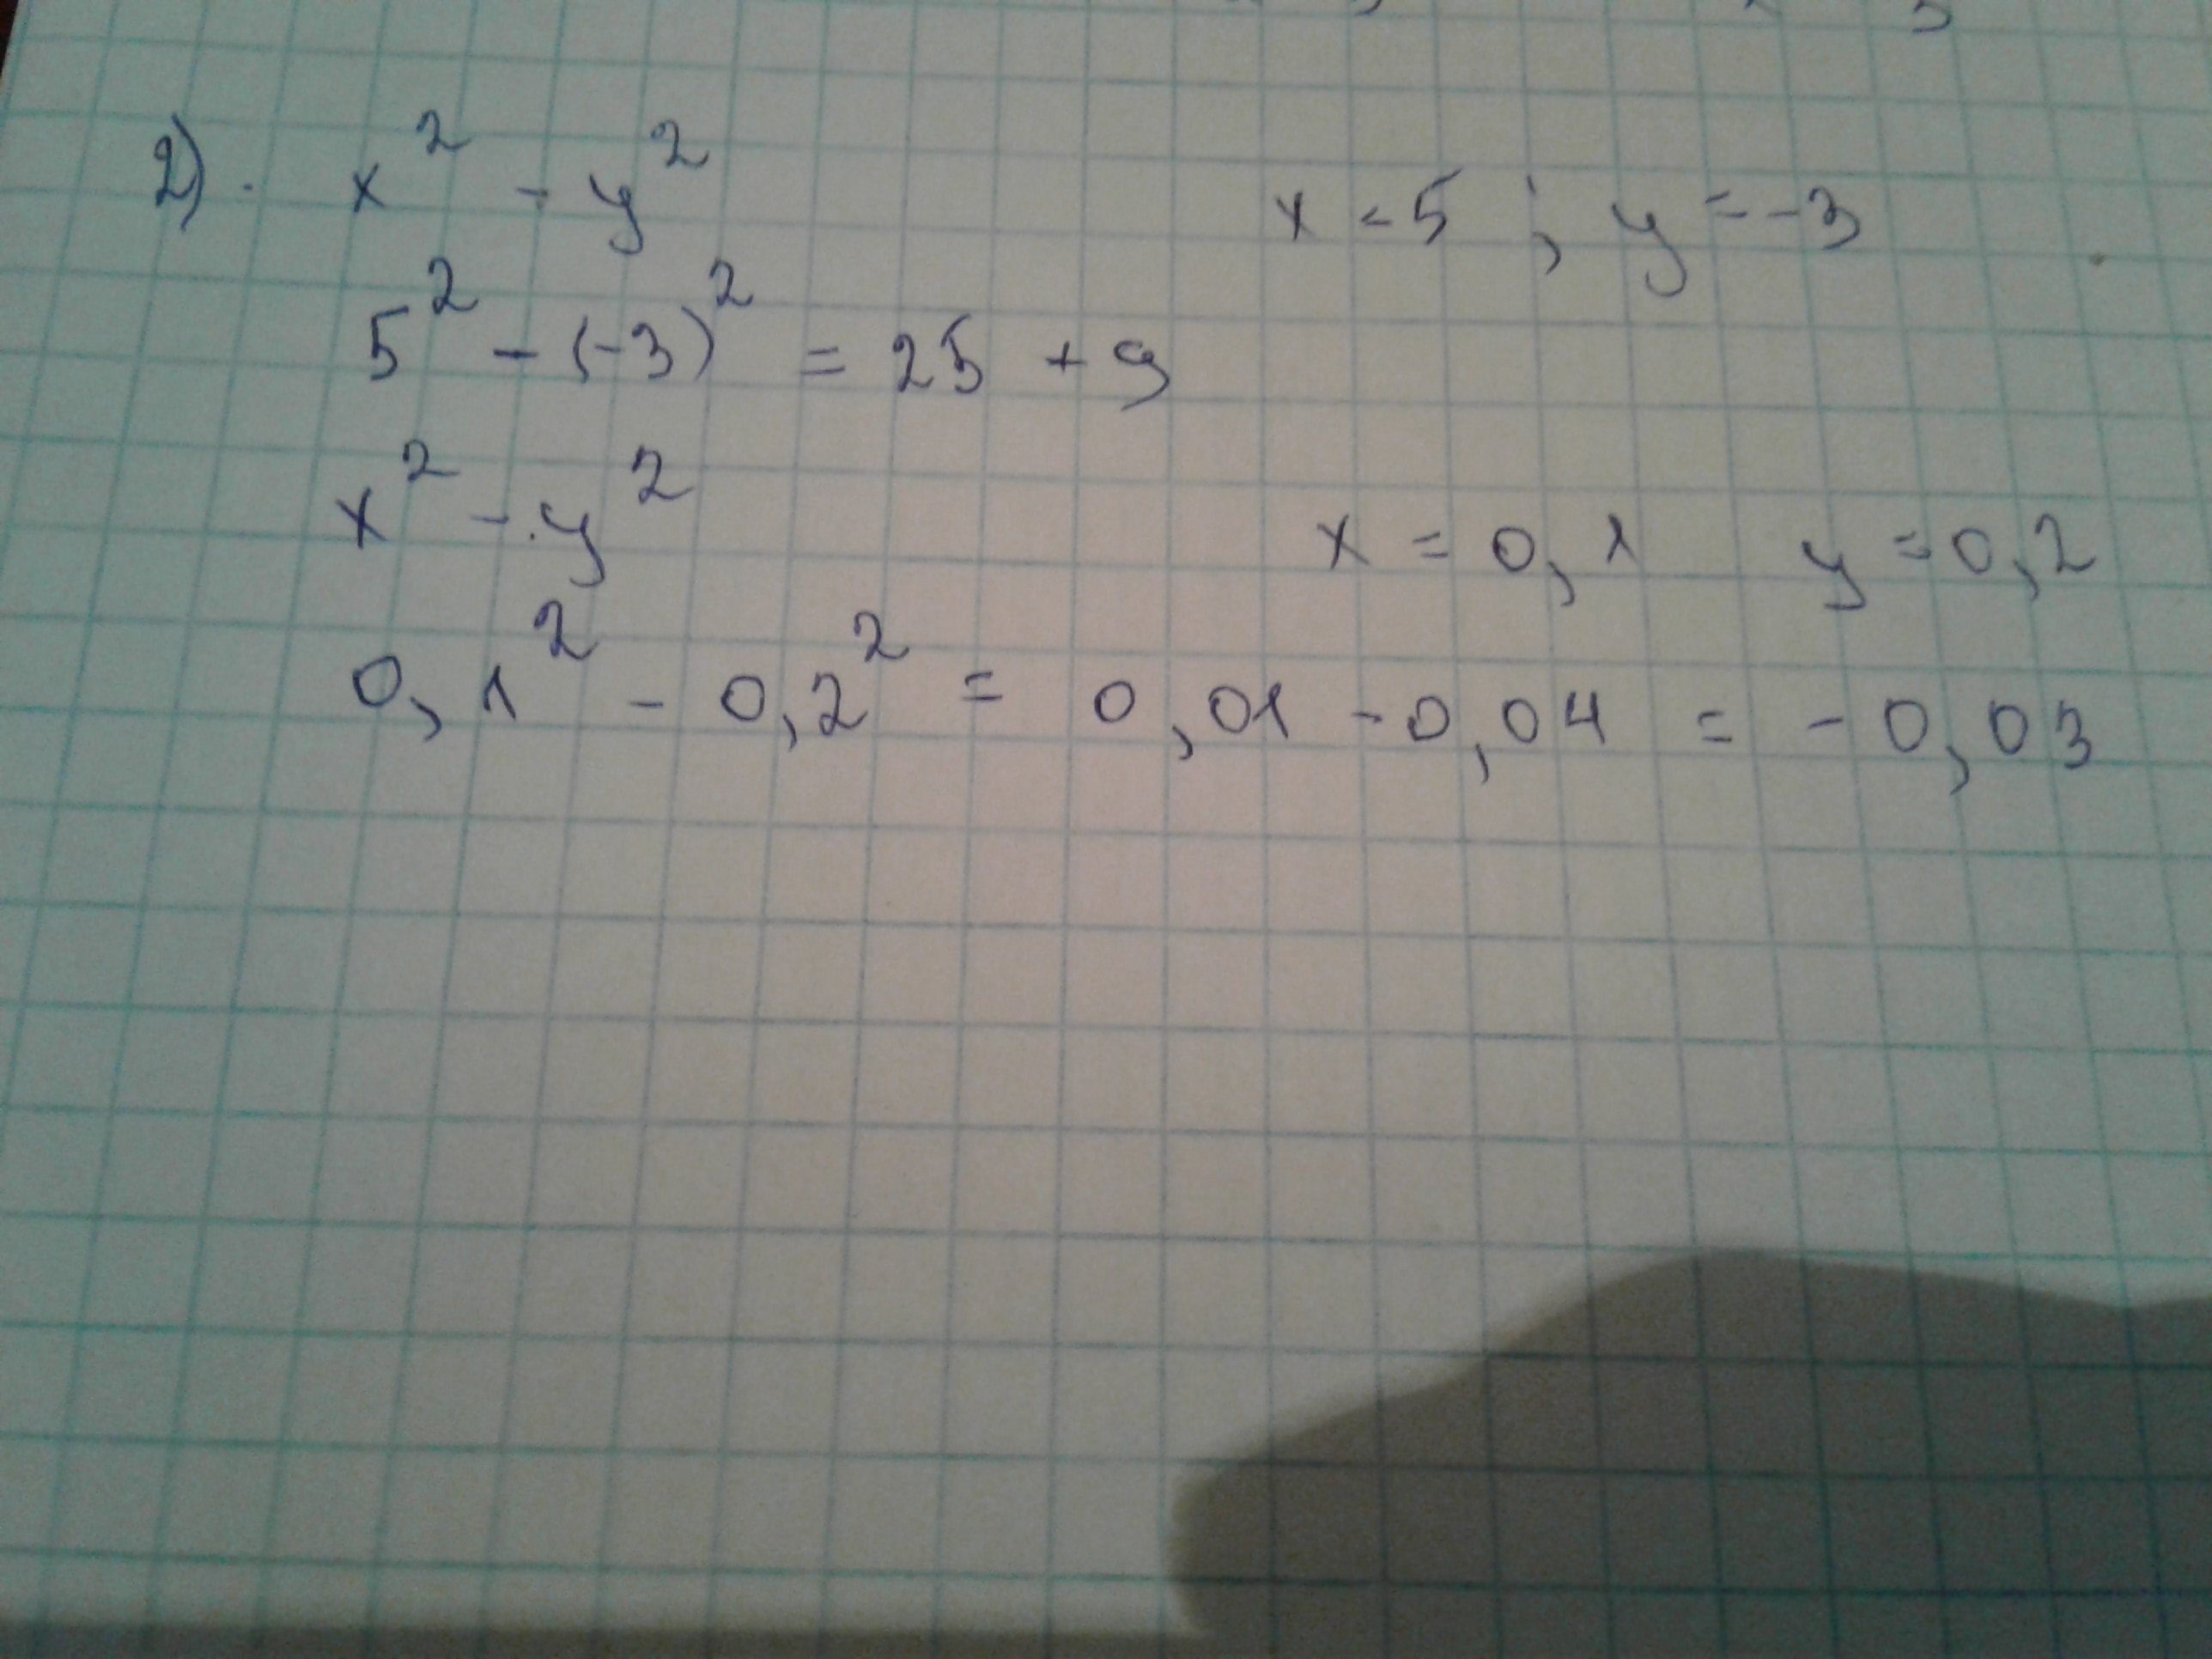 2). x² - y² x = 5 ; y = -3
5² - (-3)² = 25 + 9
x² - y² x = 0,1 y = 0,2
0,1² - 0,2² = 0,01 - 0,04 = - 0,03